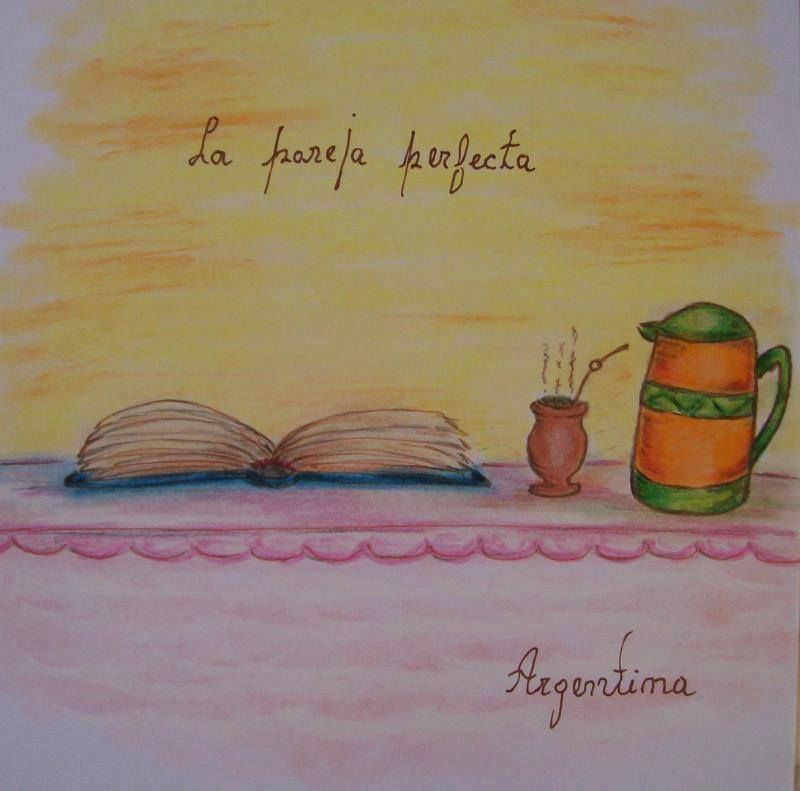 La pareja perfecta
Argentina